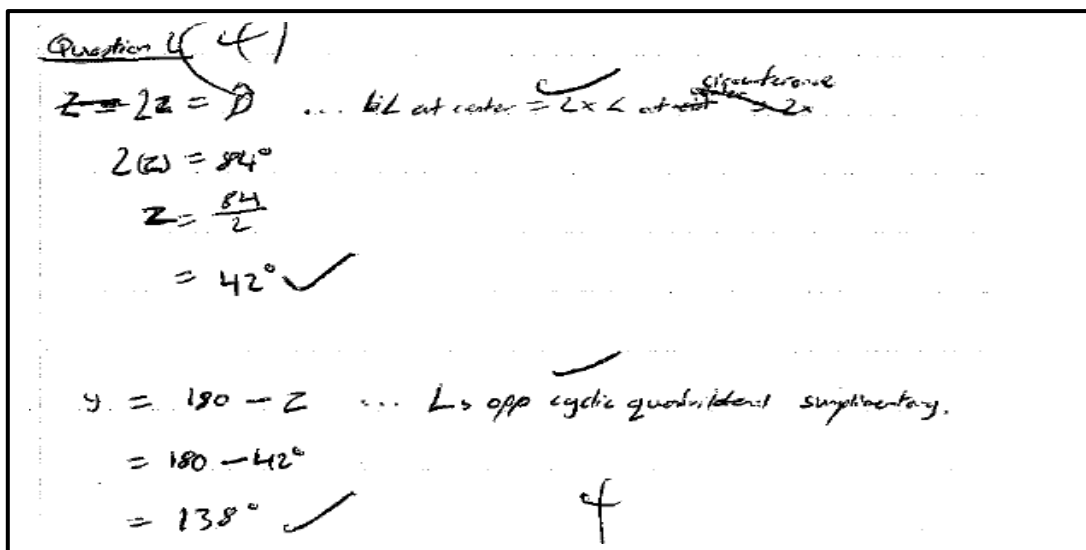 Question 4 (4)
z = 2z = D̂ ... L at center = 2x < at circumference = 2x
2(z) = 84°
z = 84/2
= 42° ✓
y = 180 - z ... Ls opp cyclic quadrilateral suplimentary.
= 180 - 42°
= 138° ✓
4